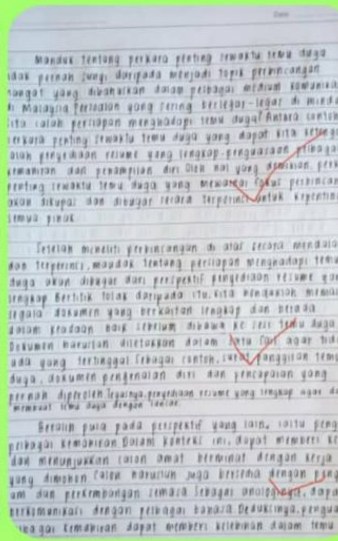 Date
Mauduk tentang perkara penting sewaktu temu duga
idak pernah sunyi daripada menjadi topik perbincangan
hangat yang dibahaskan dalam pelbagai medium komunikasi
di Malaysia persoalan yang sering berlegar-legar di minda
kita ialah persiapan menghadapi temu duga? Antara contoh
perkara penting sewaktu temu duga yang dapat kita
ialah penyediaan resume yang lengkap, penguasaan pelbagai
kemahiran dan penampilan diri. Oleh hal yang demikian, perk
penting sewaktu temu duga yang mewarnai fokus perbincan
akan dikupas dan dihuraikan secara terperinci untuk kepentin
semua pihak
Setelah meneliti perbincangan di atas secara mendala
dan terperinci, mauduk tentang persiapan menghadapi temu
duga akan dikupas dari perspektif penyediaan resume yan
lengkap Bertitik tolak daripada itu, kita hendaklah memas
segala dokumen yang berkaitan lengkap dan berada
dalam keadaan baik sebelum dibawa ke sesi temu duga
Dokumen haruslah diletakkan dalam satu fail agar tida
ada yang tertinggal Sebagai contoh, surat panggilan temu
duga, dokumen pengenalan diri dan pencapaian yang
pernah diperoleh. Tegasnya, penyediaan resume yang lengkap agar da
membuat temu duga dengan lancar.
Beralih pula pada perspektif yang lain, iaitu peng
pelbagai kemahiran Dalam konteks ini, dapat memberi ke
dan menunjukkan calon amat berminat dengan kerja
yang dimohon Calon haruslah juga bersedia dengan peng
am dan perkembangan semasa Sebagai analoginya, dapa
berkomunikasi dengan pelbagai bahasa Deduksinya, pengua
pelbagai kemahiran dapat memberi kelebihan dalam temu